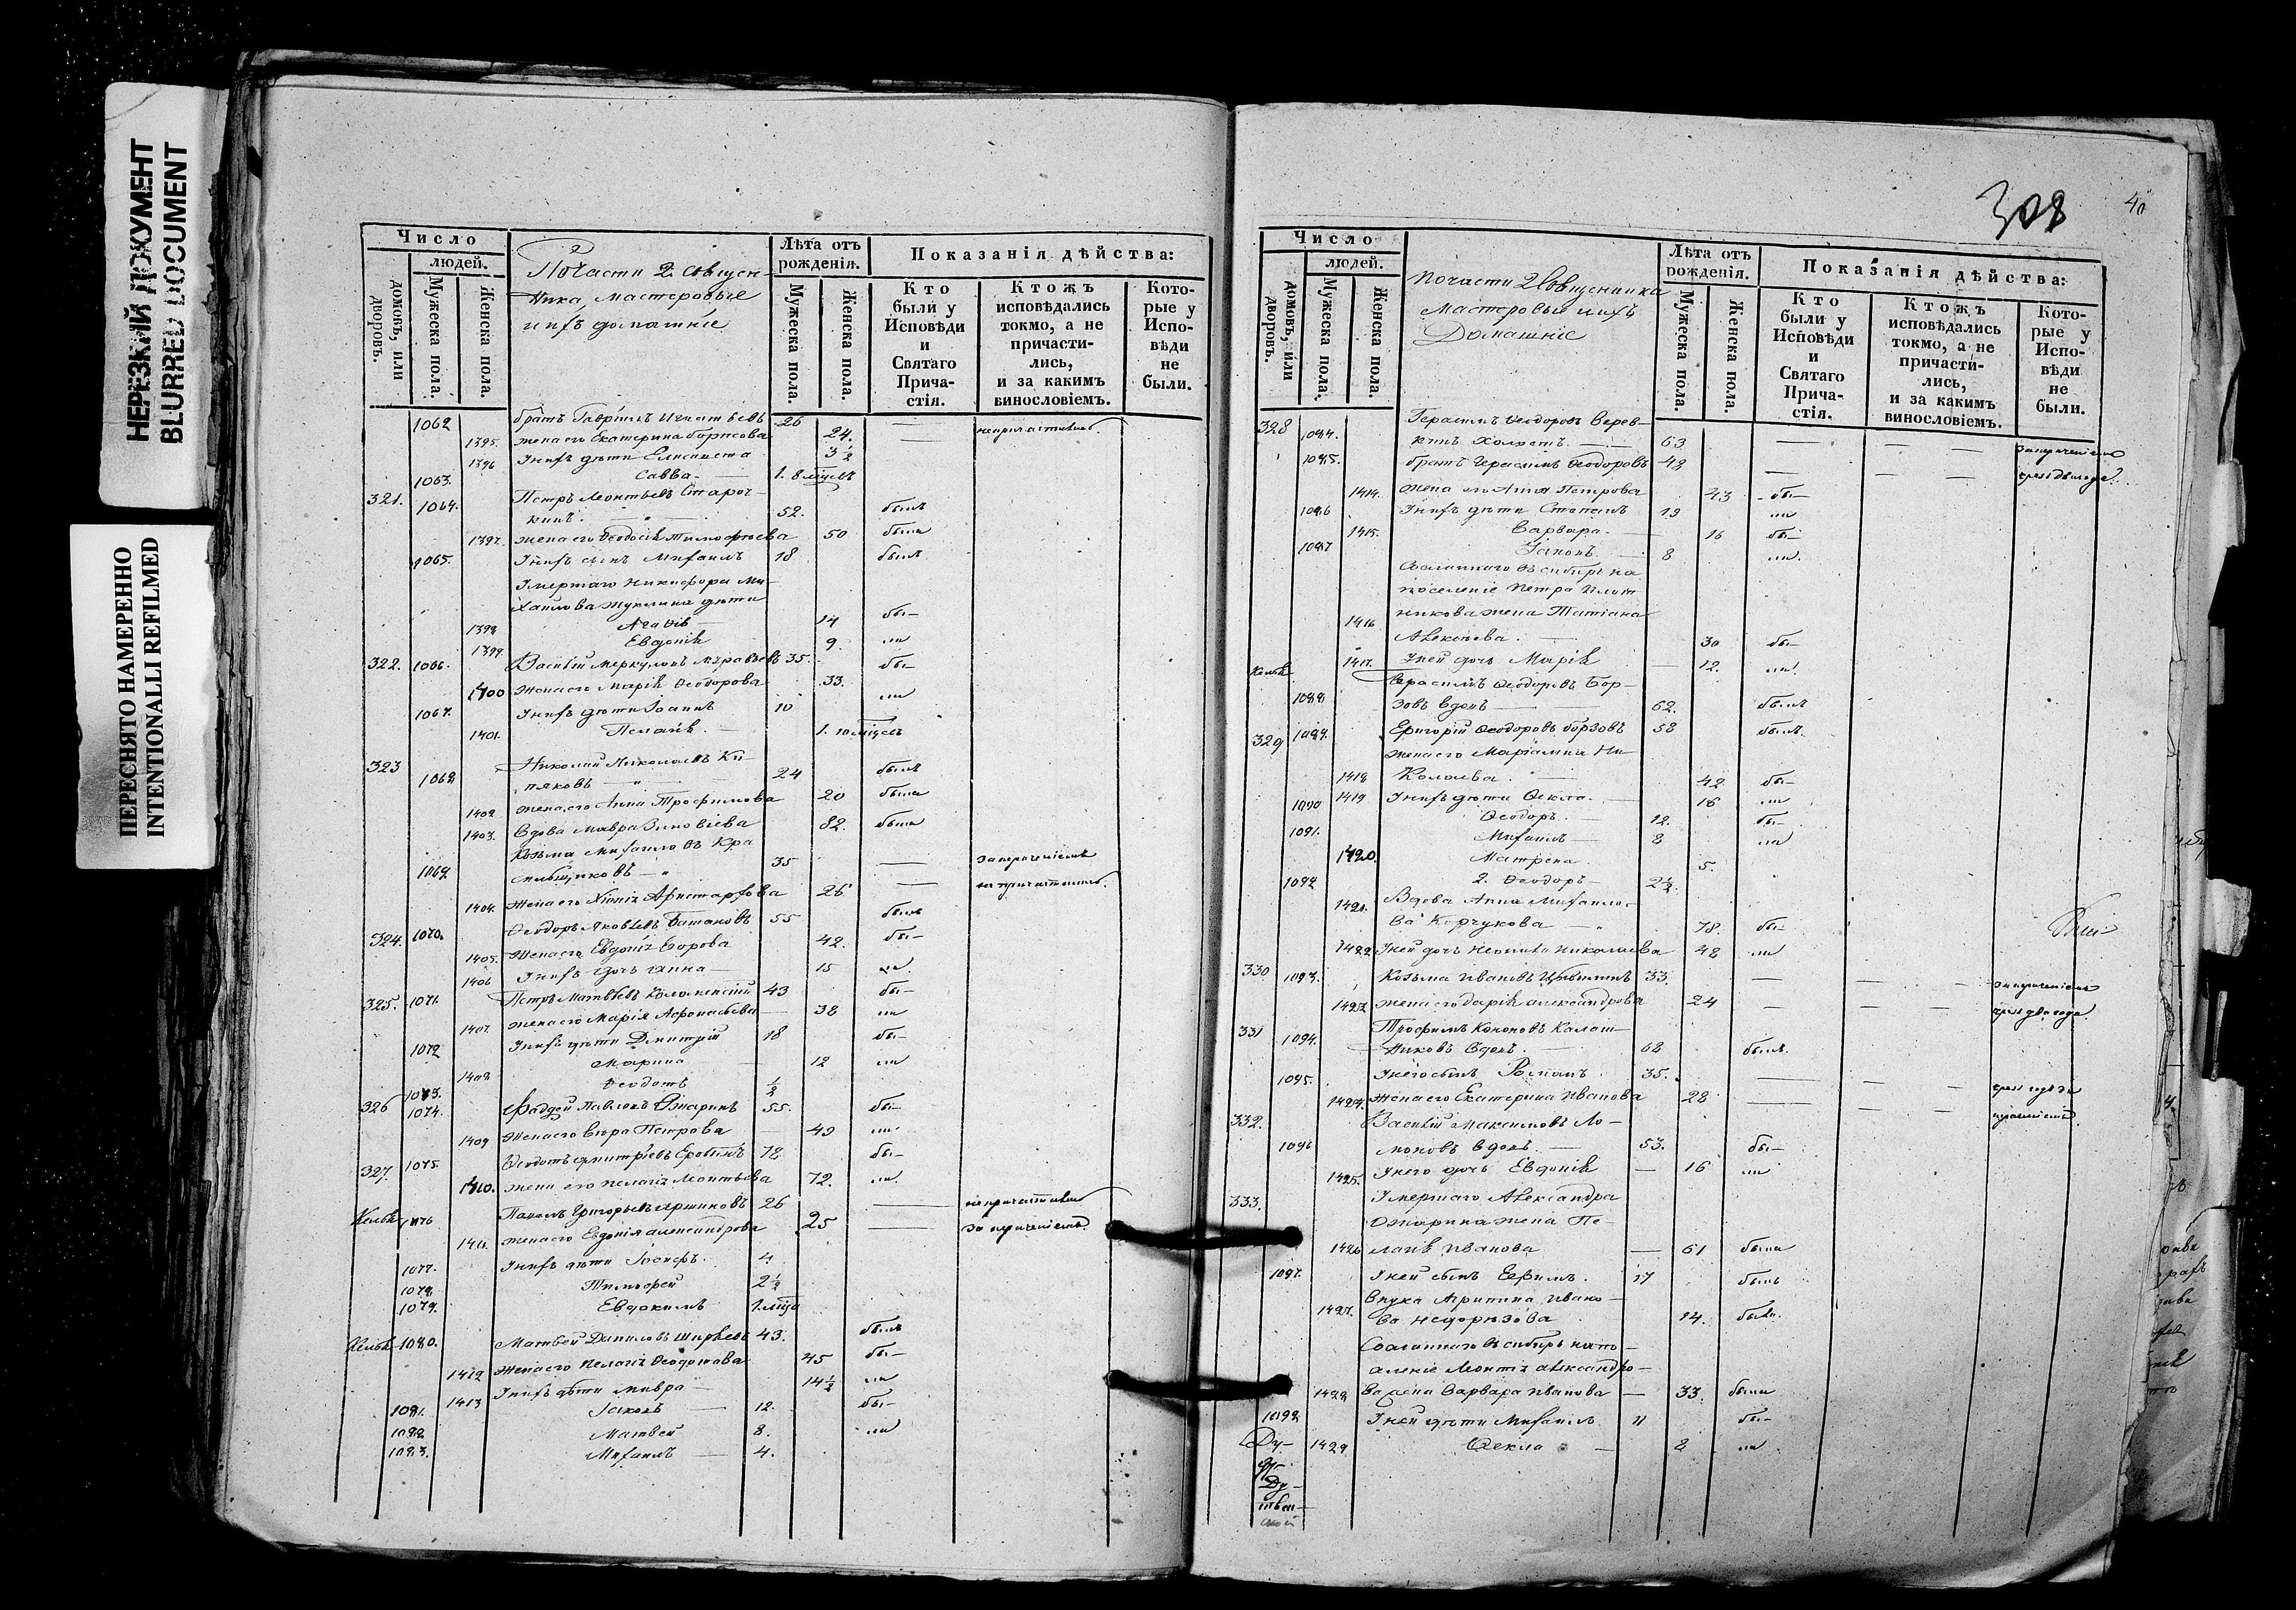 НЕРЕЗКИЙ ДОКУМЕНТ
BLURRED DOCUMENT
ПЕРЕСНЯТО НАМЕРЕННО
INTENTIONALLI REFILMED
Число
людей.
домовъ, или дворовъ.
Мужеска пола.
Женска пола.
По части 2 Священ-
ника, Мастеровые
и ихъ домашніе
Лѣта отъ
рожденія.
Мужеска пола.
Женска пола.
Показанія дѣйства:
Кто
были у
Исповѣди
и
Святаго
Прича-
стія.
Ктожъ
исповѣдались
токмо, а не
причасти-
лись,
и за какимъ
винословіемъ.
Кото-
рые у
Испо-
вѣди
не
были.
1062 братъ Гавріилъ Игнатьевъ 26
1395. жена его Екатерина Борисова 24.
1396 У нихъ дѣти Елисавета 3 ½
1063. Савва 1. 8 мѣсцевъ
321. 1064. Петръ Леонтьевъ
52. былъ
1397. жена его Ѳеодосія Тимофѣева 50 была
1065. У нихъ сынъ Михаилъ 18 былъ
Умершаго Никифора Ми-
хайлова дѣти
1398 Агафія 14 бы-
1399 Евдокія 9. ли
322. 1066. Василій Меркуловъ 35. бы-
1400 жена его Марія Ѳеодорова 33. ли
1067. У нихъ дѣти Іоаннъ 10
1401. Пелагія 1. 10 мѣсцевъ
323 Николай Николаевъ
1068 24 былъ
1402 жена его Анна Трофимова 20 была
1403. Вдова Мавра Зиновіева 82. была
Козьма Михайловъ Кра
1069 сильщиковъ 35
1404. жена его Хіонія Аристархова 26
324. 1070. Ѳеодоръ Яковлевъ Батаковъ 55 былъ
1405. жена его Евдокія Егорова 42. бы-
1406 У нихъ дочь Анна 15 ли.
325. 1071. Петръ Матвѣевъ Коломенскій 43 бы-
1407. жена его Марія Афонасьева 38 ли
1072 У нихъ дѣти Димитрій 18 бы-
1408 Марина 12 ли
1073. Ѳеодотъ ½
326 1074. Фаддей Павловъ Ожаринъ 55. бы-
1409 жена его Вѣра Петрова 49 ли
327. 1075. Ѳеодотъ Дмитріевъ 78 бы-
1410. жена его Пелагія Леонтьева 72. ли.
1076 Павелъ Григорьевъ 26
1411. жена его Евдокія Александрова 25
1077. У нихъ дѣти Іосифъ 4
1078 Тимофей 2 ½
1079. Евдокимъ 1. мѣсца
1080. Матвей Даниловъ 43. былъ
1412 жена его Пелагія Ѳеодотова 45 бы-
1413 У нихъ дѣти Мавра 14 ½ ли
1081. Іаковъ 12. бы-
1082 Матвей 8. ли
1083. Михаилъ 4.
308
40
Число
людей.
домовъ, или дворовъ.
Мужеска пола.
Женска пола.
По части 2 Священника
Мастеровые и ихъ
Домашніе
Лѣта отъ
рожденія.
Мужеска пола.
Женска пола.
Показанія дѣйства:
Кто
были у
Исповѣди
и
Святаго
Прича-
стія.
Ктожъ
исповѣдались
токмо, а не
причасти-
лись,
и за какимъ
винословіемъ.
Кото-
рые у
Испо-
вѣди
не
были.
328 Герасимъ Ѳеодоровъ Верев-
1084. кинъ холостъ 63
1085. братъ Герасимъ Ѳеодоровъ 48
1414. жена его Анна Петрова 43 бы-
1086 У нихъ дѣти Степанъ 19 ли
1415. Варвара 16 бы-
1087 Іаковъ 8 ли.
Сосланнаго въ сибирь на
поселеніе Петра Плот
никова жена Татіана
1416 Алексѣева. 30 бы-
1417. У ней дочь Марія 12. ли.
Герасимъ Ѳеодоровъ Бор-
1088 зовъ вдовъ 62. былъ
329 1089. Григорій Ѳеодоровъ борзовъ 58 былъ
жена его Маріамна Ни
1418 Колаева. 42 бы-
1419 У нихъ дѣти Ѳекла 16 ли
1090 Ѳеодоръ 12. бы-
1091. Михаилъ 8 ли
1420. Матрена 5.
1092 2. Ѳеодоръ 2 ½
1421. Вдова Анна Михайло-
ва Корчукова 78. бы-
1422 У ней дочь Неонила Николаева 48 ли
330 1093. Козьма Ивановъ 33.
1423 жена его Дарія Александрова 24
331 Трофимъ Кононовъ Калаш-
1094. никовъ вдовъ 68 былъ
1095. У него сынъ Романъ 35.
1424. жена его Екатерина Иванова 28
332. Василій Максимовъ Ло-
1096 моновъ вдовъ 53. бы-
1425. У него дочь Евдокія 16 ли
333. Умершаго Александра
Ожарина жена Пе-
1426 лагія Иванова 61 была
1097. У ней сынъ Ефимъ. 17 былъ
Внука Агрипина Ивано-
1427. ва 14. была
Сосланнаго въ сибирь на по-
селеніе Леонтія Александро-
1428 ва жена Варвара Иванова 33. была
1098 У ней дѣти Михаилъ 11 бы-
1429 Ѳекла 8 ли